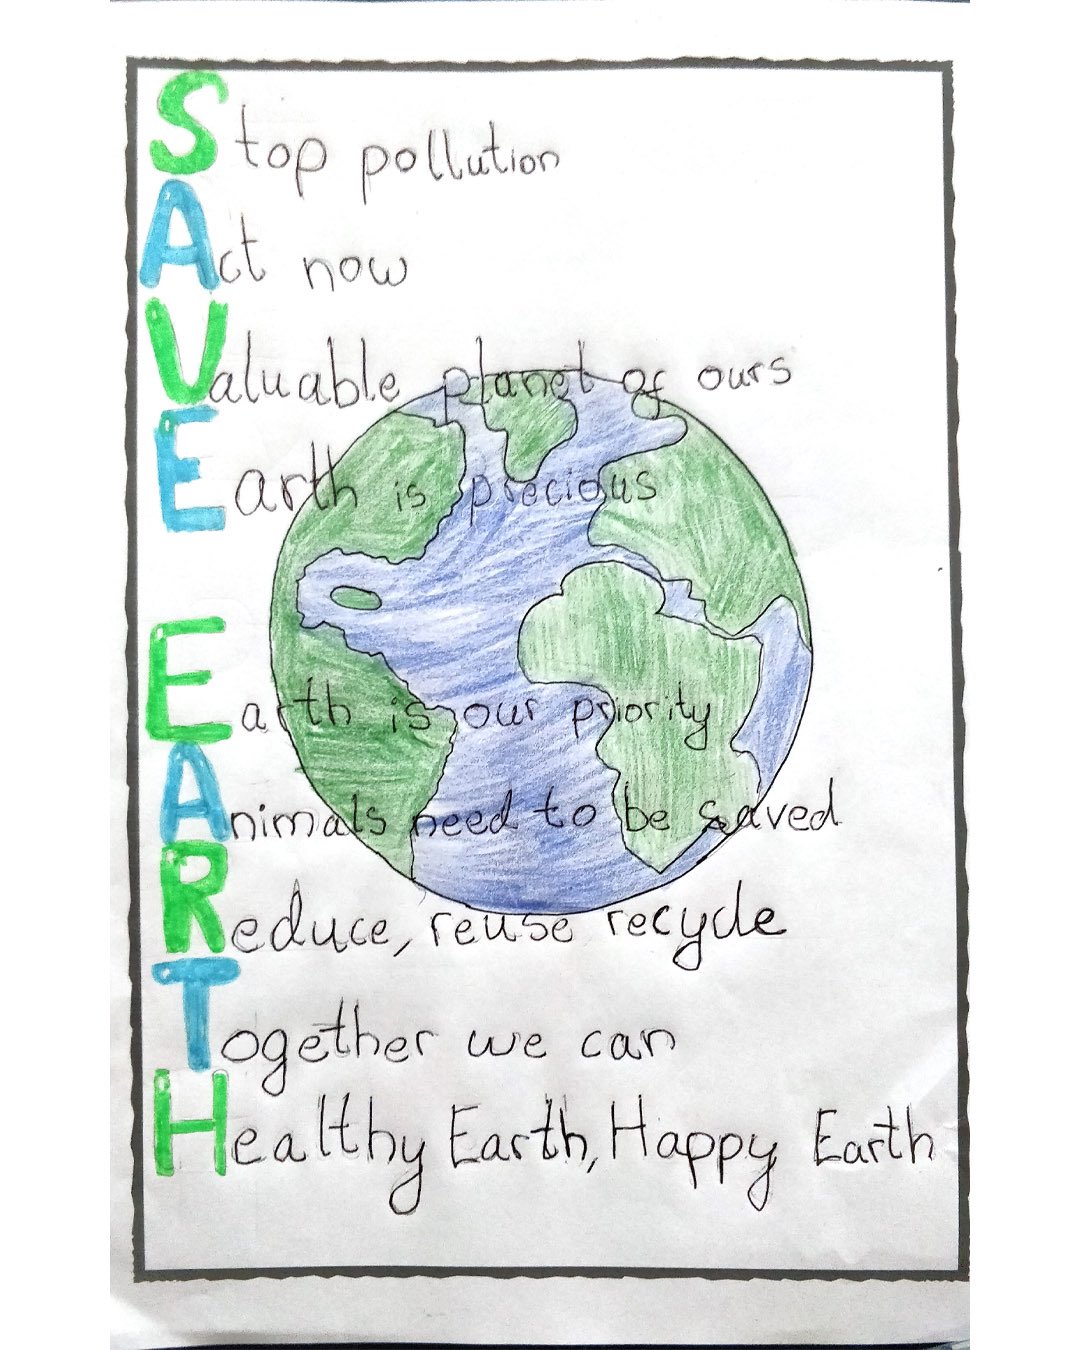 Stop pollution
Act now
Valuable planet of ours
Earth is precious
Earth is our priority
Animals need to be saved
Reduce, reuse recycle
Together we can
Healthy Earth, Happy Earth